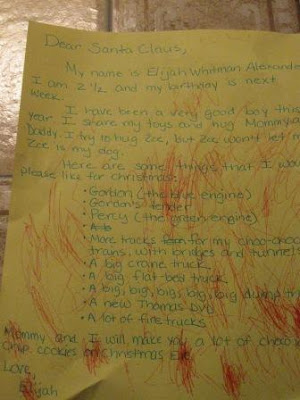 Dear Santa Claus,
My name is Elijah Whitman Alexander
I am 2 1/2 and my birthday is next
week.
I have been a very good boy this
year. I share my toys and hug Mommy and
Daddy. I try to hug Zee, but Zee won't let me
Zee is my dog.
Here are some things that I would
please like for Christmas:
• Gordon (the blue engine)
• Gordon's tender
• Percy (the green engine)
• A
• More tracks for my choo-choo
trains, with bridges and tunnels
• A big crane truck
• A big flat-bed truck
• A big, big, bigs big, big dump truck
• A new Thomas DVD
• A lot of fire trucks
Mommy and I will make you a lot of
cookies on Christmas Eve.
Love,
Elijah